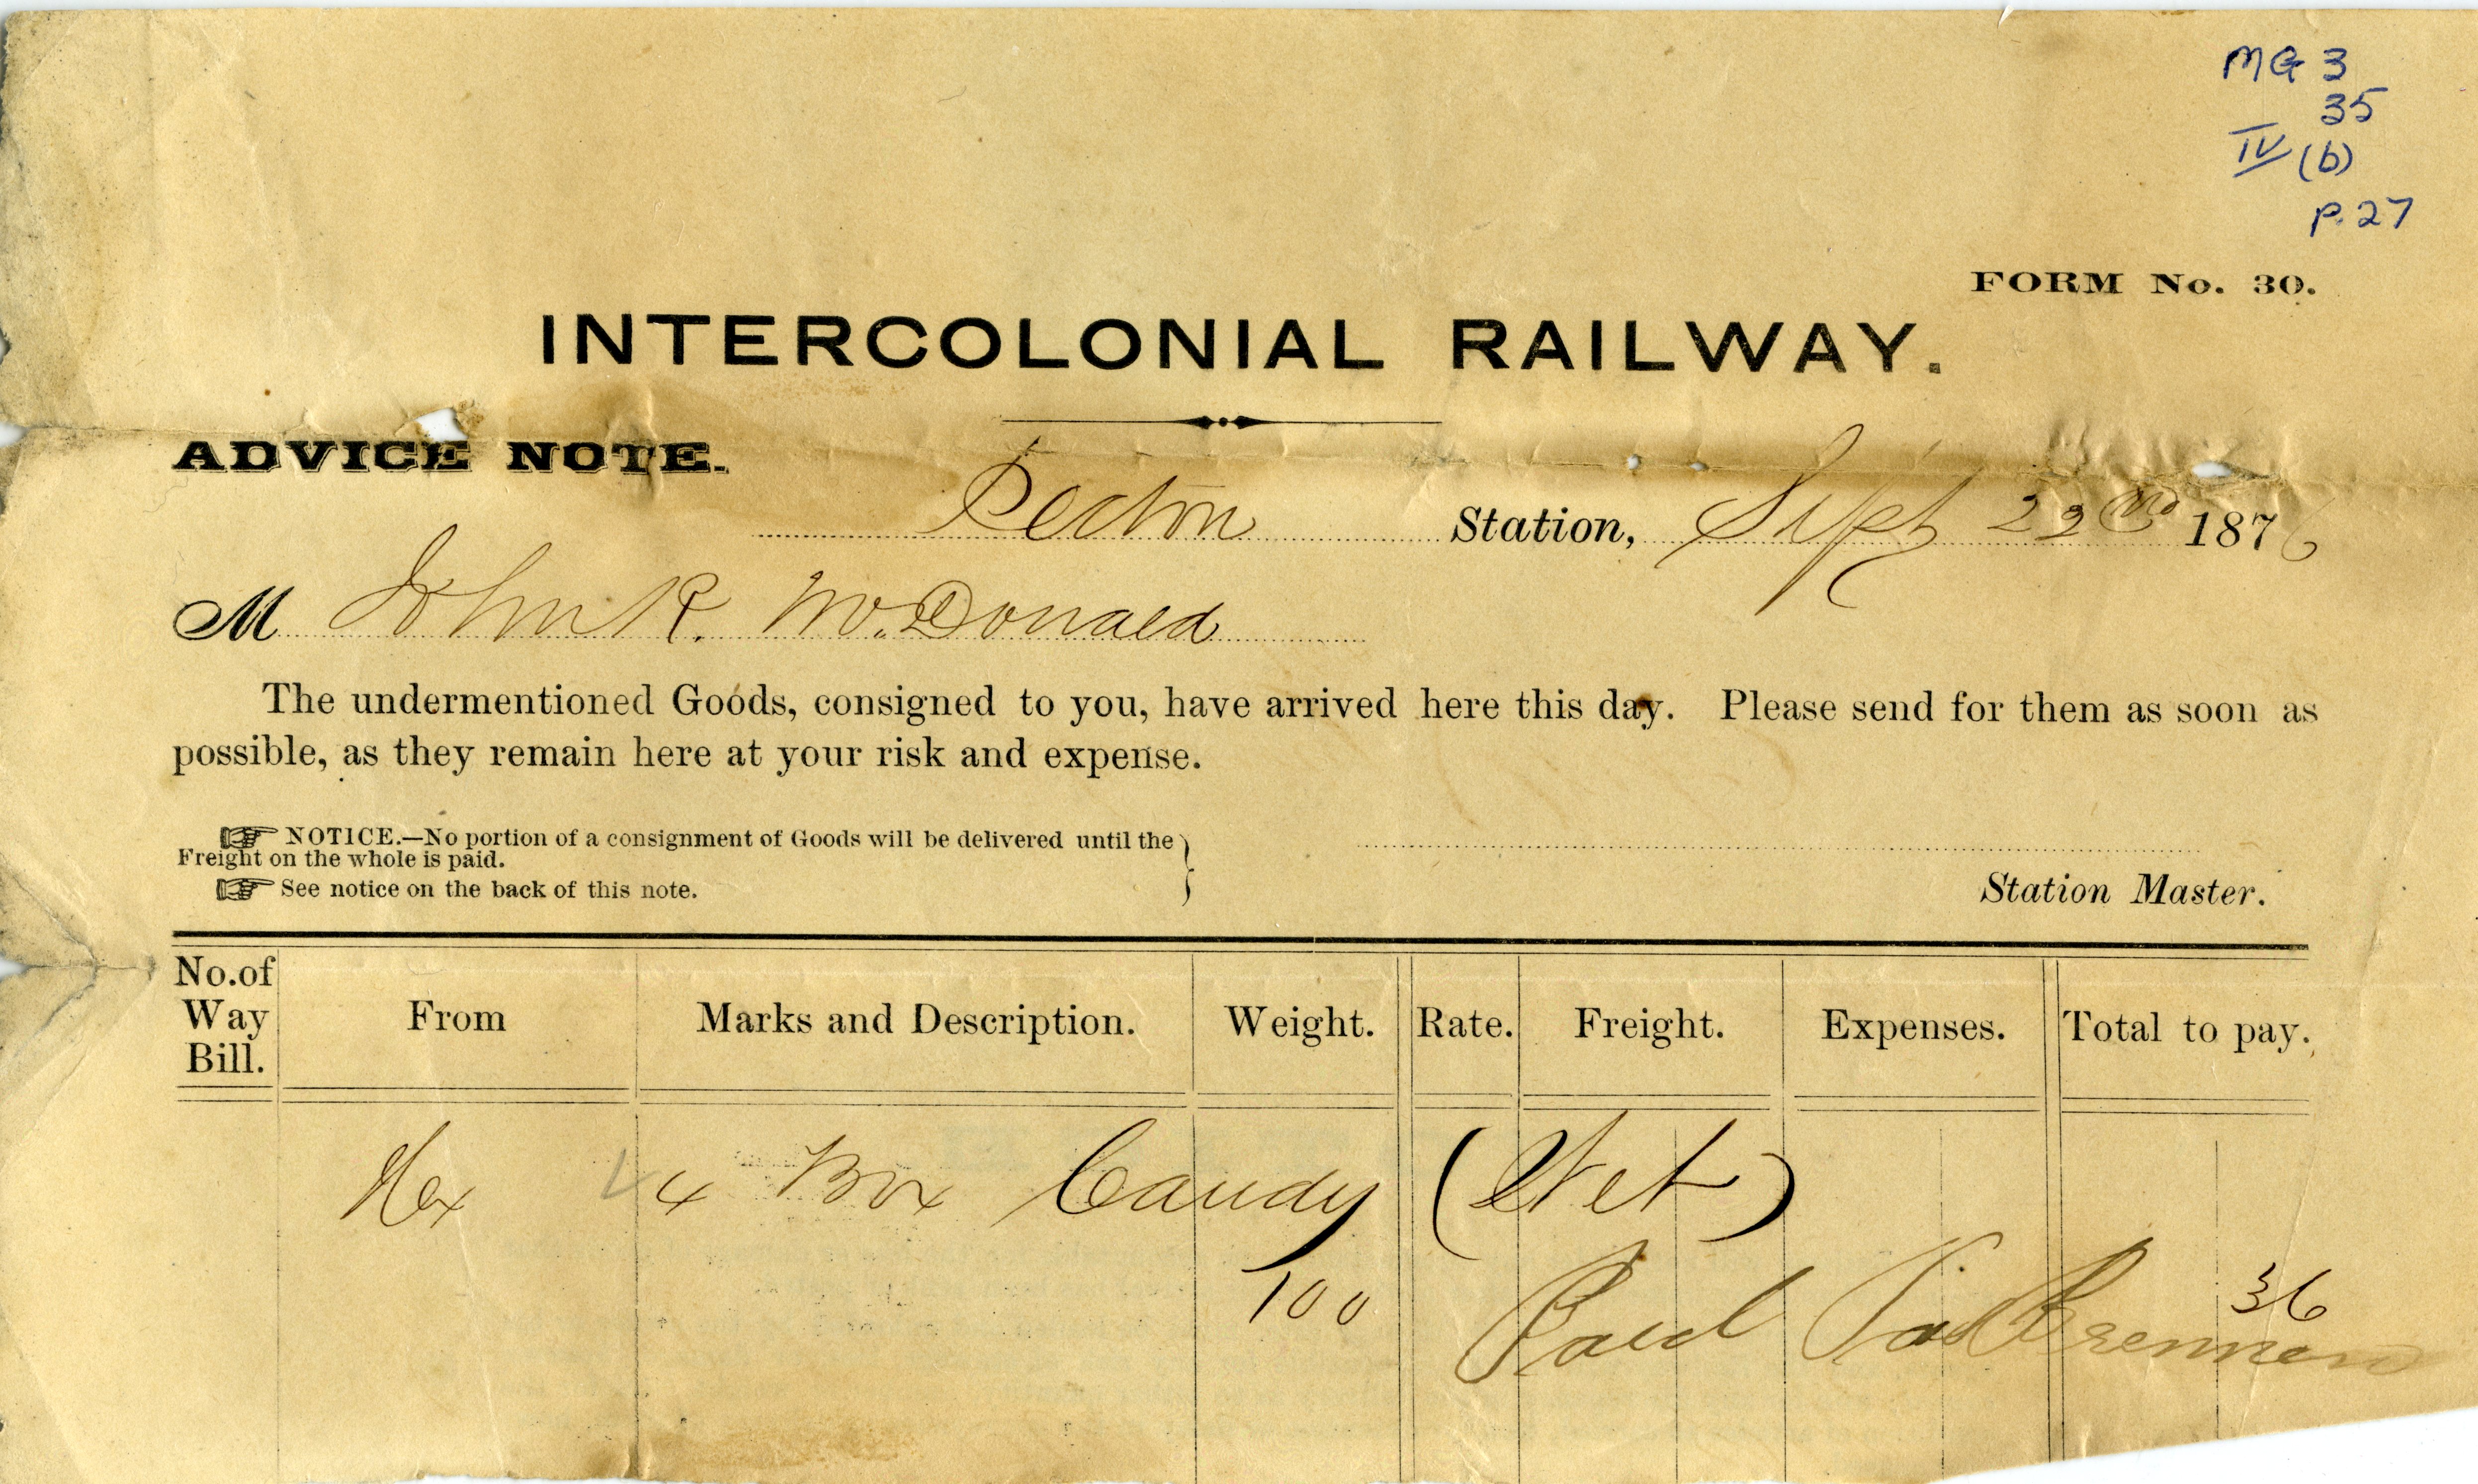 MG 3
35
IV (b)
P. 27
FORM No. 30.
INTERCOLONIAL RAILWAY.
ADVICE NOTE.
Pictou Station, Sept 22nd 1876
M John R. McDonald
The undermentioned Goods, consigned to you, have arrived here this day. Please send for them as soon as
possible, as they remain here at your risk and expense.
☞ NOTICE.—No portion of a consignment of Goods will be delivered until the
Freight on the whole is paid.
☞ See notice on the back of this note.
Station Master.
No. of Way Bill. From Marks and Description. Weight. Rate. Freight. Expenses. Total to pay.
Hx 4 Box Candy (Wet)
100 36
Paid Jas Brennan